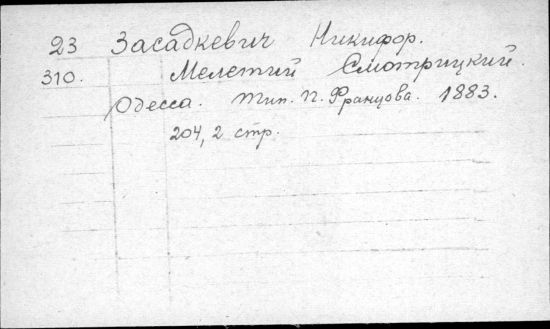 23 Засадкевич Никифор.
310. Мелетий Смотрицкий.
Одесса. Тип. П. Францова. 1883.
204, 2 стр.